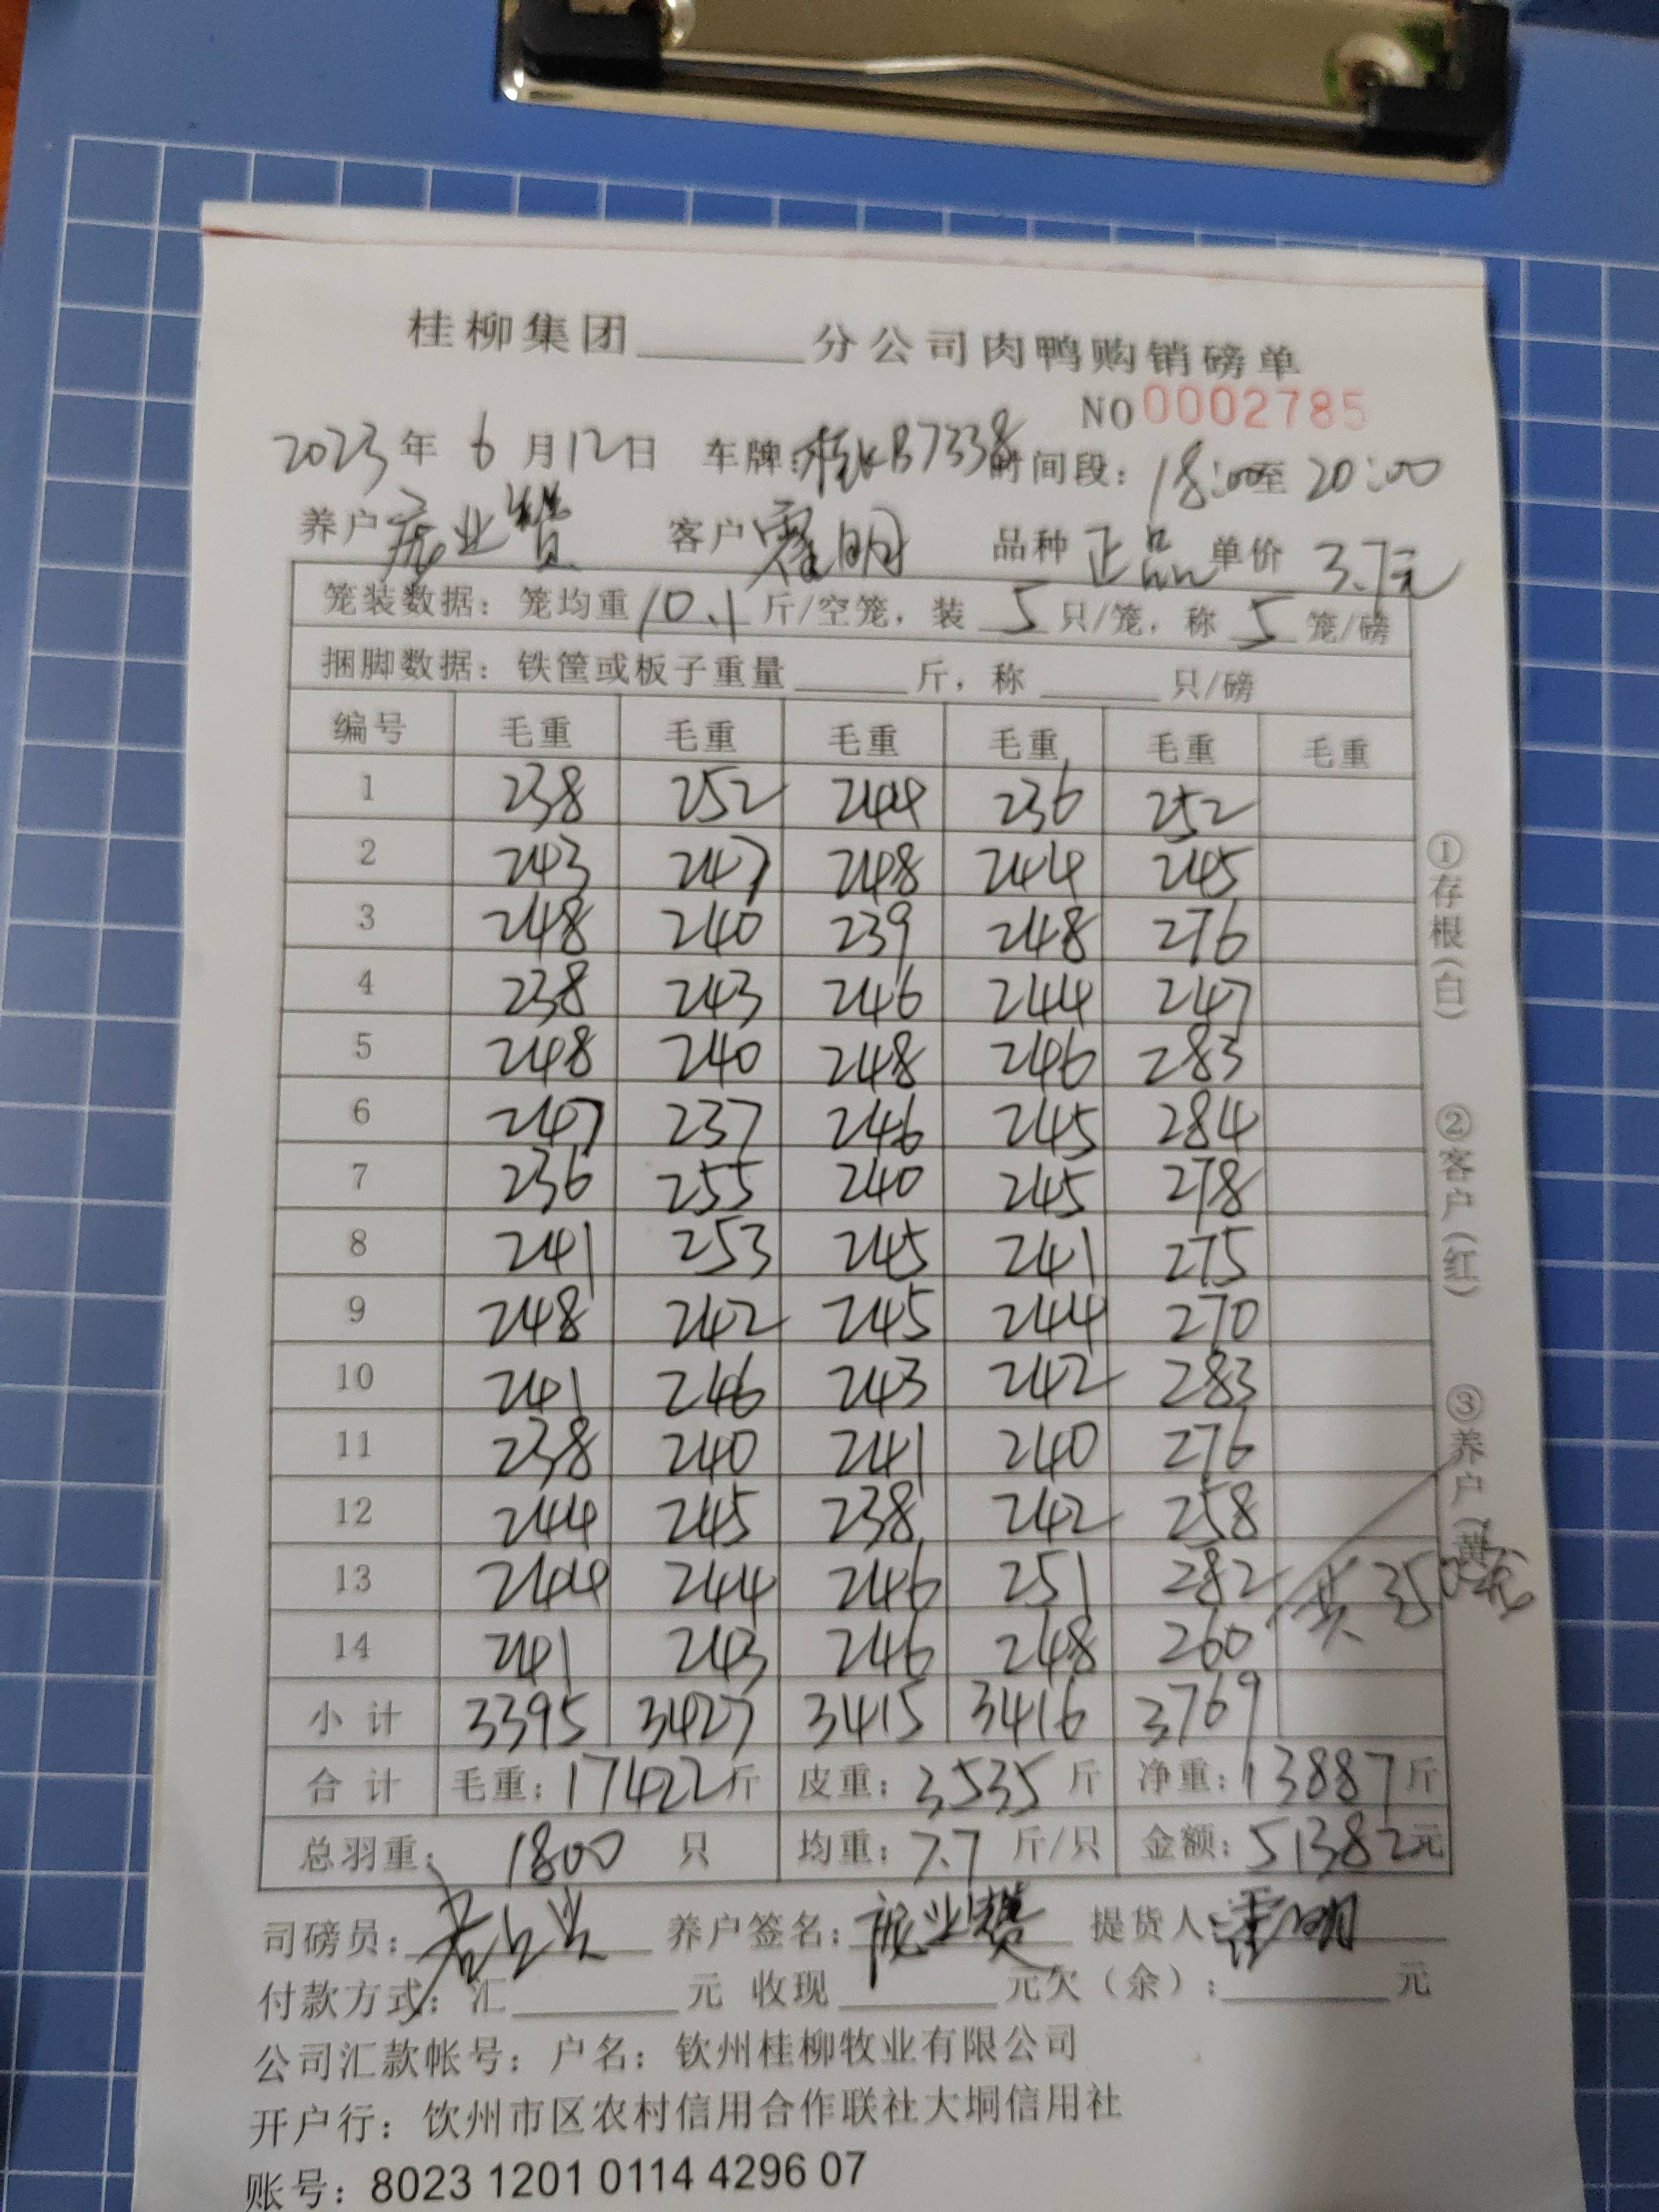 桂柳集团______分公司肉鸭购销磅单
NO 0002785
2023年 6月12日 车牌:桂KB7338 时间段:18:00至20:00
养户 庞业赞 客户 霍明 品种 正品 单价 3.7元
笼装数据:笼均重10.1斤/空笼,装 5 只/笼,称 5 笼/磅
捆脚数据:铁筐或板子重量______斤,称______只/磅
编号 毛重 毛重 毛重 毛重 毛重 毛重
1 238 252 244 236 252
2 243 247 248 244 245
3 248 240 239 248 276
4 238 243 246 244 247
5 248 240 248 246 283
6 247 237 246 245 284
7 236 255 240 245 278
8 241 253 245 241 275
9 248 242 245 244 270
10 241 246 243 242 283
11 238 240 241 240 276
12 244 245 238 242 258
13 244 244 246 251 282
14 241 243 246 248 260
共350笼
小计 3395 3427 3415 3416 3769
合计 毛重:17422斤 皮重:3535斤 净重:13887斤
总羽重:1800 只 均重:7.7 斤/只 金额:51382元
司磅员: 养户签名:庞业赞 提货人:霍明
付款方式:汇______元 收现______元欠(余):______元
公司汇款帐号:户名:钦州桂柳牧业有限公司
开户行:钦州市区农村信用合作联社大垌信用社
账号:8023 1201 0114 4296 07
①存根(白) ②客户(红) ③养户(黄)